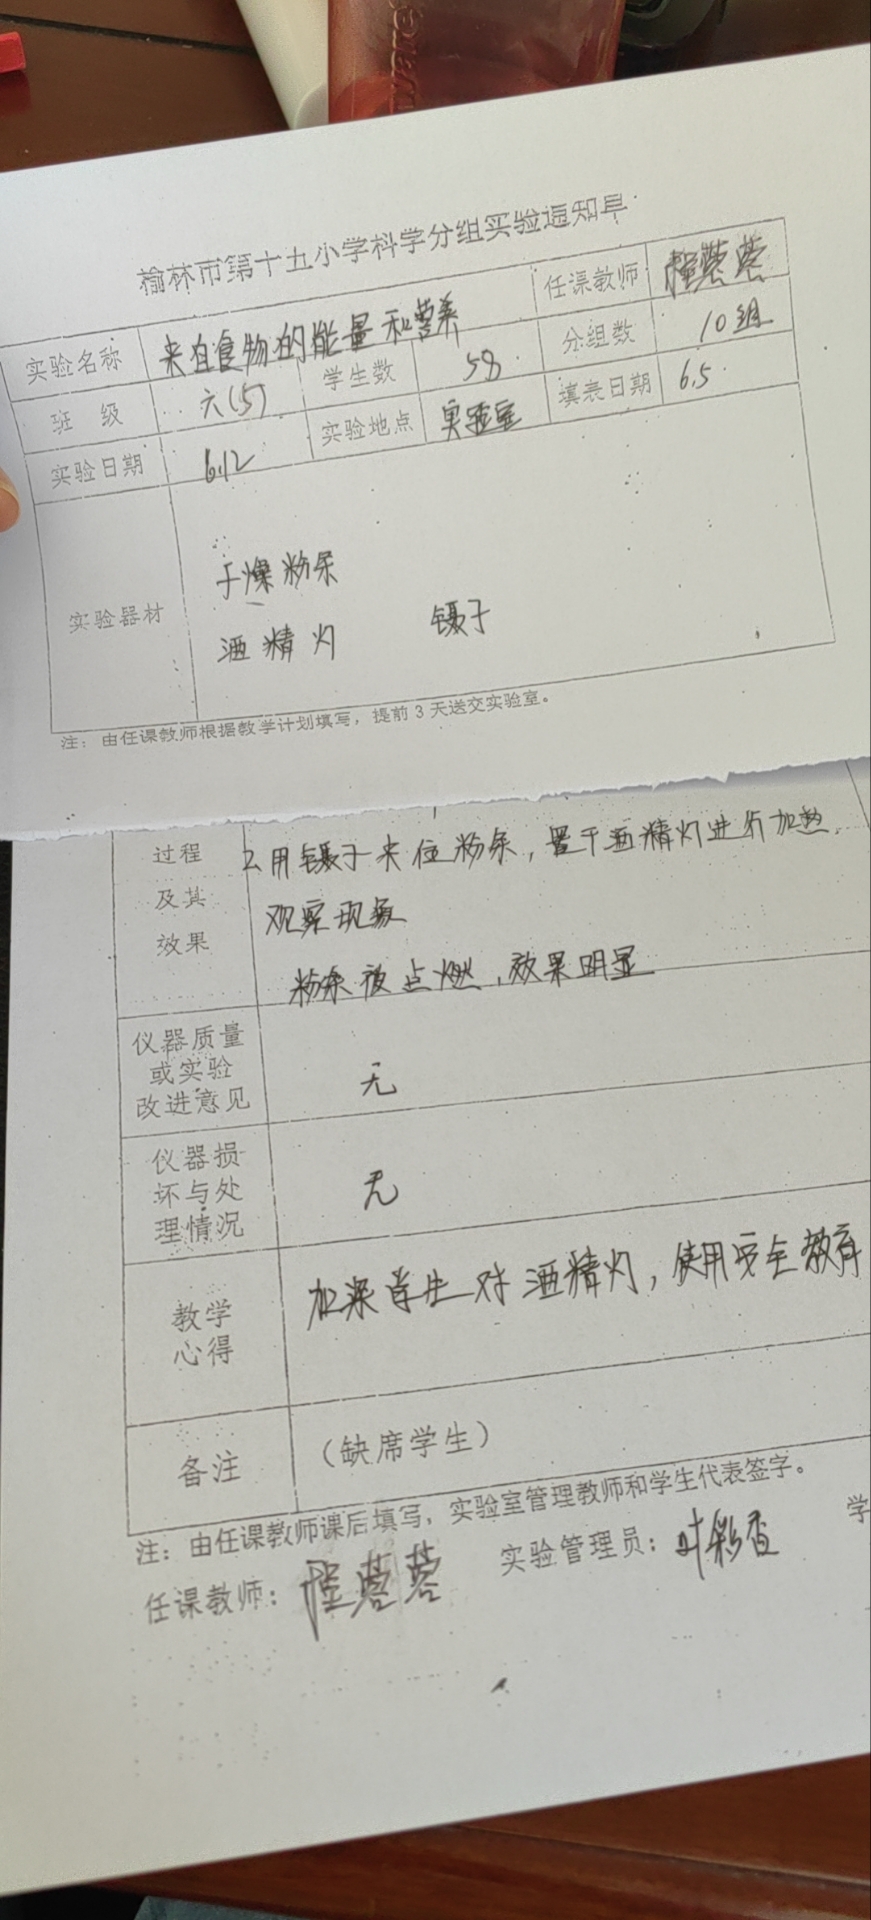 ware
榆林市第十五小学科学分组实验通知单
实验名称 来自食物的能量和营养 任课教师 程蓉蓉
班 级 六(5) 学生数 58 分组数 10组
实验日期 6.12 实验地点 实验室 填表日期 6.5
实验器材
干燥粉条
酒精灯 镊子
注：由任课教师根据教学计划填写，提前3天送交实验室。
过程
及其
效果
2.用镊子夹住粉条，置于酒精灯进行加热
观察现象
粉条被点燃，效果明显
仪器质量
或实验
改进意见
无
仪器损
坏与处
理情况
无
教学
心得
加深学生对酒精灯，使用安全教育
备注 （缺席学生）
注：由任课教师课后填写，实验室管理教师和学生代表签字。
任课教师：程蓉蓉 实验管理员：叶彩香 学